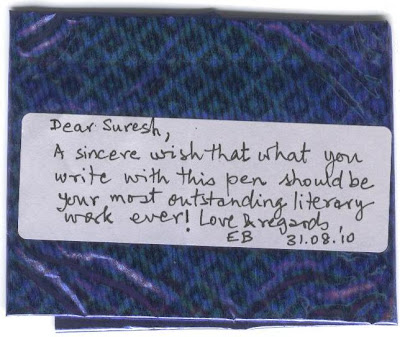 Dear Suresh,
A sincere wish that what you
write with this pen should be
your most outstanding literary
work ever! Love & regards,
EB 31.08.10